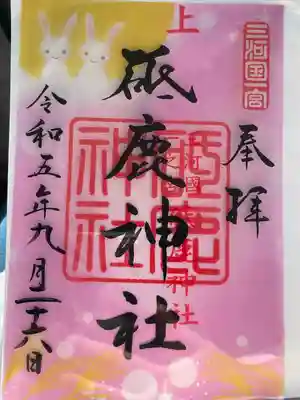 三河国一宮
奉拝
上
砥鹿神社
砥鹿神社
河國
神社
令和五年九月二十六日